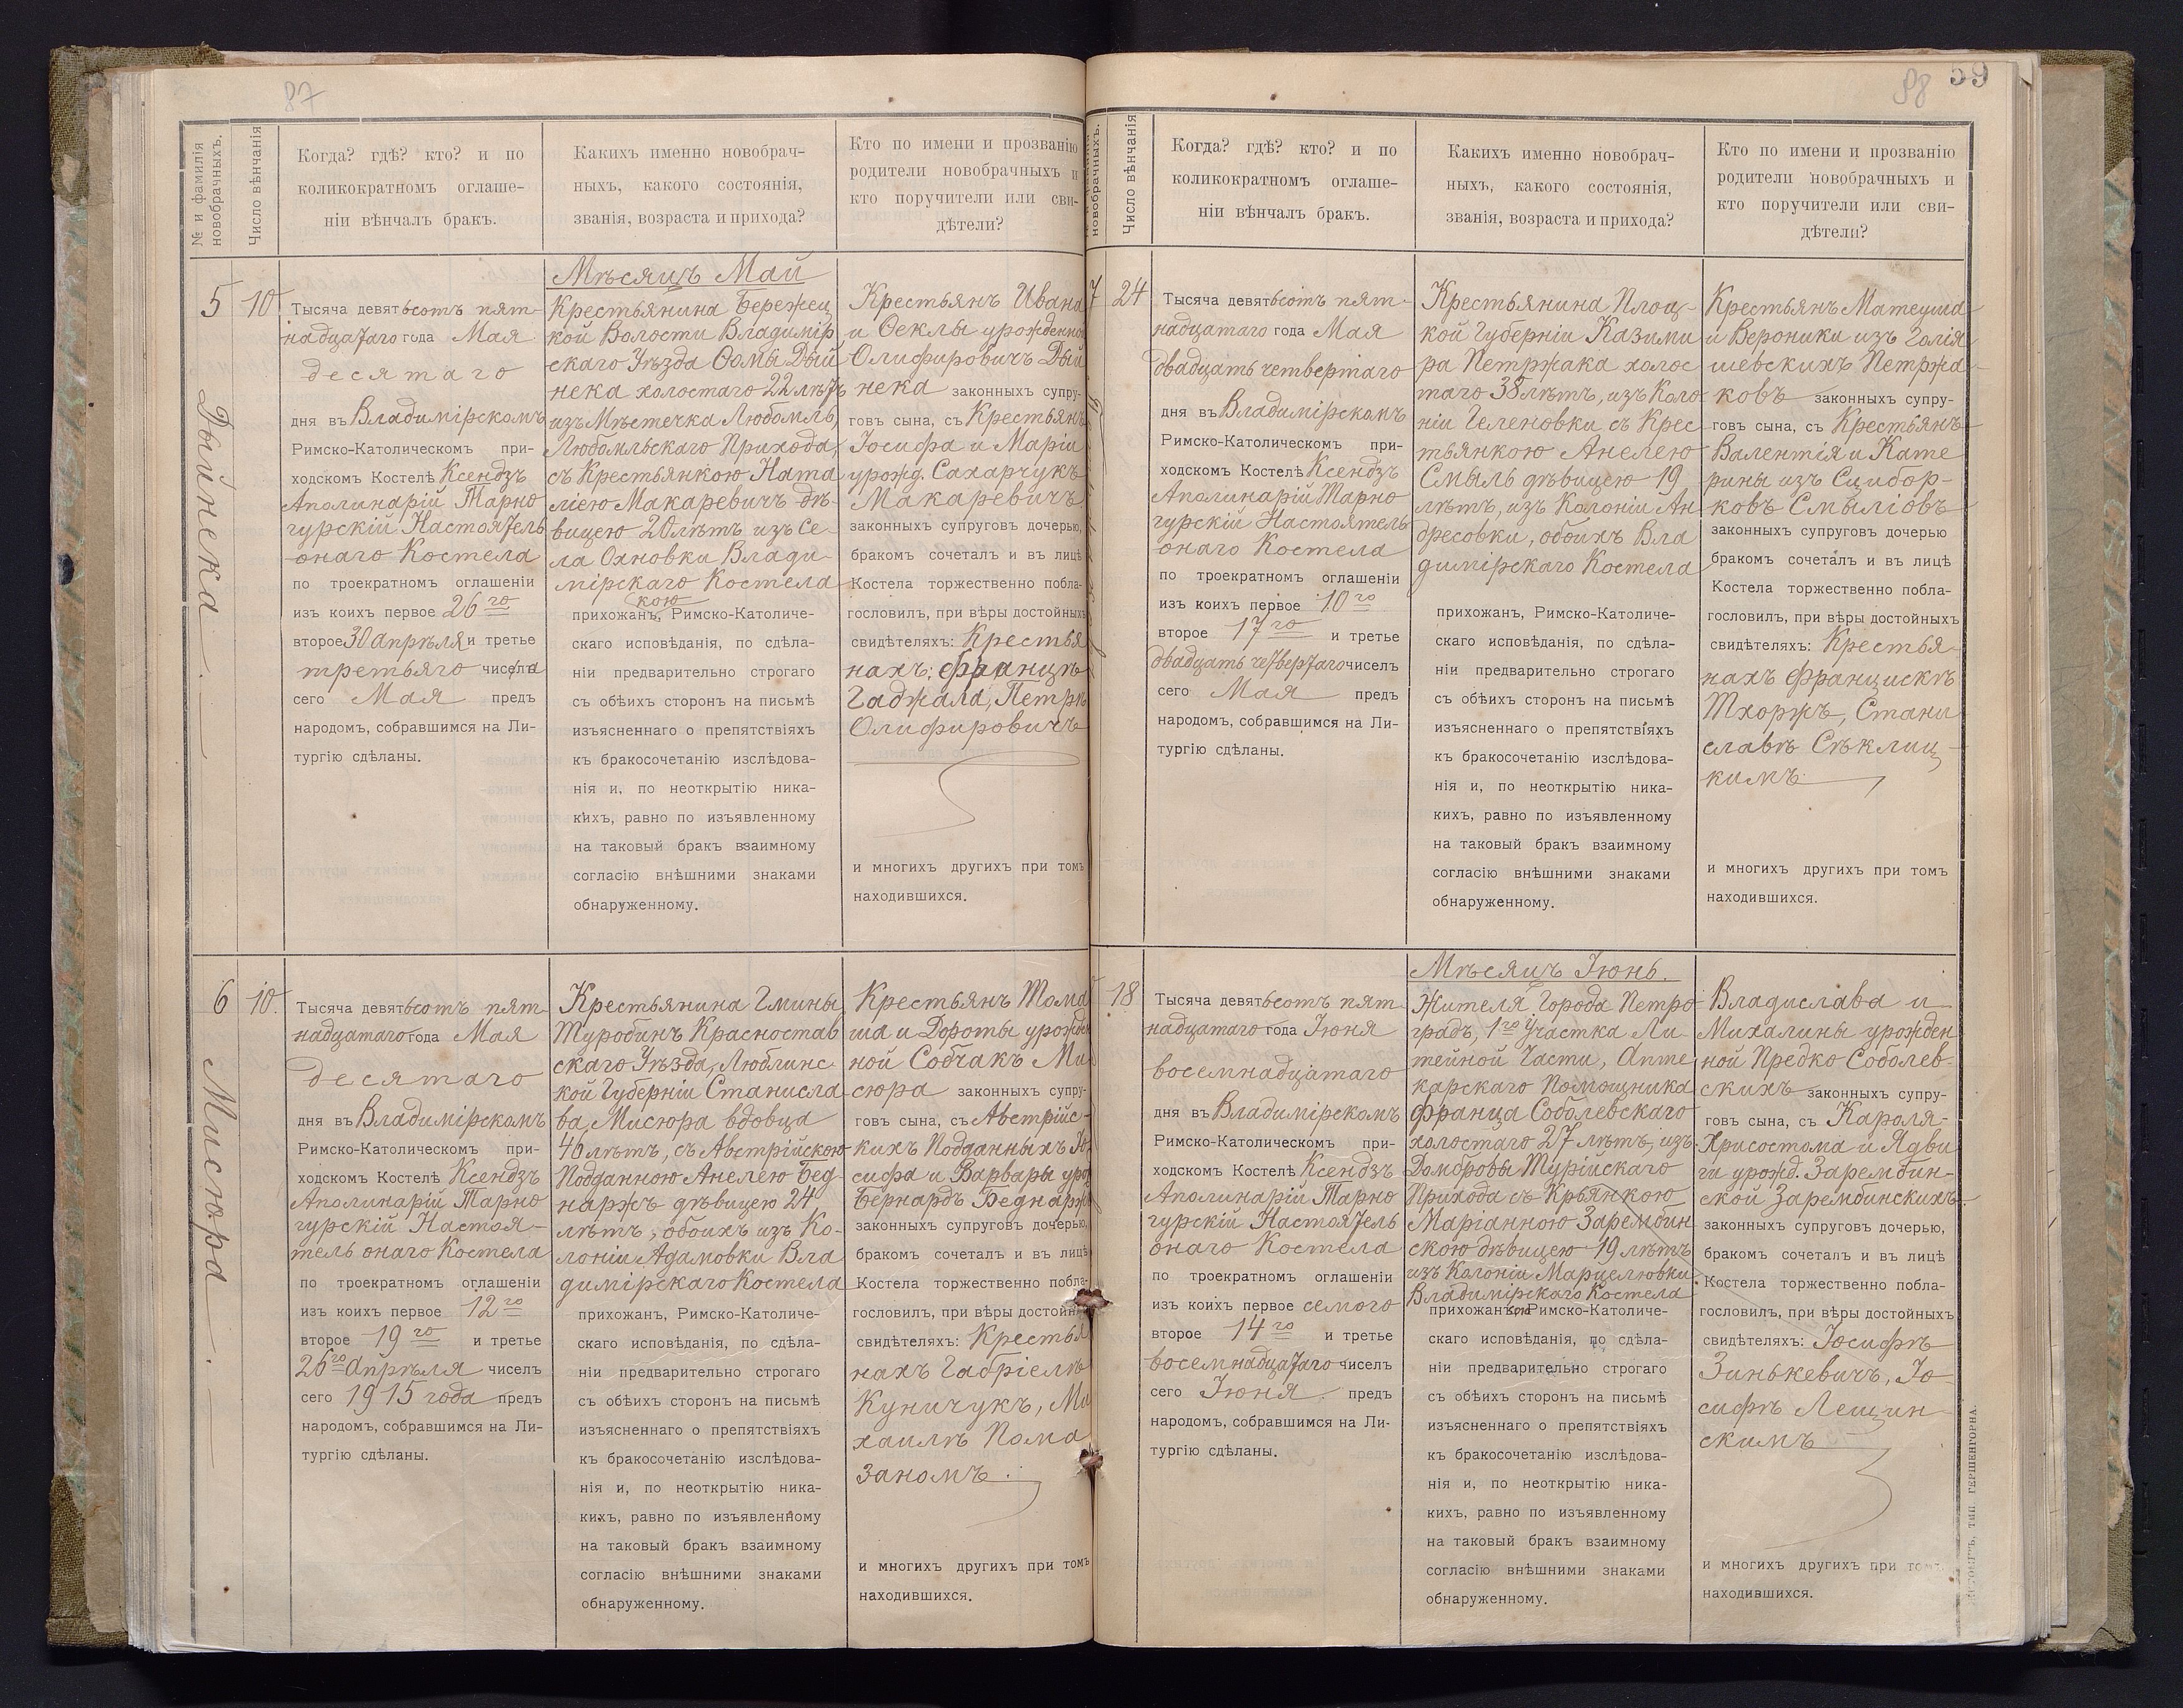 87
№ и фамилія
новобрачныхъ.
Число вѣнчанія
Когда? гдѣ? кто? и по
коликократномъ оглаше-
ніи вѣнчалъ бракъ.
Какихъ именно новобрач-
ныхъ, какого состоянія,
званія, возраста и прихода?
Кто по имени и прозванію
родители новобрачныхъ и
кто поручители или сви-
дѣтели?
5
Дыйнека
10.
Тысяча девятьсотъ пят-
надцатаго года Мая
десятаго
дня въ Владимірскомъ
Римско-Католическомъ при-
ходскомъ Костелѣ Ксендзъ
Аполинарій Тарно
гурскій Настоятель
онаго Костела
по троекратномъ оглашеніи
изъ коихъ первое 26го
второе 30 Апрѣля и третье
третьяго числа
сего Мая предъ
народомъ, собравшимся на Ли-
тургію сдѣланы.
Мѣсяцъ Май
Крестьянина Бережец
кой Волости Владимір
скаго Уѣзда Ѳомы Дый
нека холостаго 22 лѣтъ
изъ Мѣстечка Любомль,
Любомльскаго Прихода,
съ Крестьянкою Ната
ліею Макаревичъ дѣ-
вицею 20 лѣтъ изъ Се-
ла Охновки Влади-
мірскаго Костела
кою
прихожанъ, Римско-Католиче-
скаго исповѣданія, по сдѣла-
ніи предварительно строгаго
съ обѣихъ сторонъ на письмѣ
изъясненнаго о препятствіяхъ
къ бракосочетанію изслѣдова-
нія и, по неоткрытію ника-
кихъ, равно по изъявленному
на таковый бракъ взаимному
согласію внѣшними знаками
обнаруженному.
Крестьянъ Ивана
и Ѳеклы урожденной
Олифировичъ Дый
нека законныхъ супру-
говъ сына, съ Крестьянъ
Іосифа и Маріи
урожд. Сахарчукъ
Макаревичъ
законныхъ супруговъ дочерью,
бракомъ сочеталъ и въ лицѣ
Костела торжественно побла-
гословилъ, при вѣры достойныхъ
свидѣтеляхъ: Крестья
нахъ: Францѣ
Гаджала, Петрѣ
Олифировичъ
и многихъ другихъ при томъ
находившихся.
6
Мисюра
10.
Тысяча девятьсотъ пят-
надцатаго года Мая
десятаго
дня въ Владимірскомъ
Римско-Католическомъ при-
ходскомъ Костелѣ Ксендзъ
Аполинарій Тарно
гурскій Настоя-
тель онаго Костела
по троекратномъ оглашеніи
изъ коихъ первое 12го
второе 19го и третье
26го Апрѣля чиселъ
сего 1915 года предъ
народомъ, собравшимся на Ли-
тургію сдѣланы.
Крестьянина Гмины
Туробинъ Красностав
скаго Уѣзда, Люблинс
кой Губерніи Станисла
ва Мисюра вдовца
46 лѣтъ, съ Австрійскою
Подданною Анелею Бед
наржъ дѣвицею 24
лѣтъ, обоихъ изъ Ко-
лоніи Адамовки Вла
димірскаго Костела
прихожанъ, Римско-Католиче-
скаго исповѣданія, по сдѣла-
ніи предварительно строгаго
съ обѣихъ сторонъ на письмѣ
изъясненнаго о препятствіяхъ
къ бракосочетанію изслѣдова-
нія и, по неоткрытію ника-
кихъ, равно по изъявленному
на таковый бракъ взаимному
согласію внѣшними знаками
обнаруженному.
Крестьянъ Тома
ша и Дороты урожден
ной Собчакъ Ми
сюра законныхъ супру-
говъ сына, съ Австрійс-
кихъ Подданныхъ Іо
сифа и Варвары урож
Бернардъ Беднаржъ
законныхъ супруговъ дочерью,
бракомъ сочеталъ и въ лицѣ
Костела торжественно побла-
гословилъ, при вѣры достойныхъ
свидѣтеляхъ: Крестья
нахъ Габріелѣ
Куничукъ, Ми
хаилѣ Пома
заномъ.
и многихъ другихъ при томъ
находившихся.
88 59
новобрачныхъ.
Число вѣнчанія
Когда? гдѣ? кто? и по
коликократномъ оглаше-
ніи вѣнчалъ бракъ.
Какихъ именно новобрач-
ныхъ, какого состоянія,
званія, возраста и прихода?
Кто по имени и прозванію
родители новобрачныхъ и
кто поручители или сви-
дѣтели?
7
24
Тысяча девятьсотъ пят-
надцатаго года Мая
двадцать четвертаго
дня въ Владимірскомъ
Римско-Католическомъ при-
ходскомъ Костелѣ Ксендзъ
Аполинарій Тарно
гурскій Настоятель
онаго Костела
по троекратномъ оглашеніи
изъ коихъ первое 10го
второе 17го и третье
двадцать четвертаго чиселъ
сего Мая предъ
народомъ, собравшимся на Ли-
тургію сдѣланы.
Крестьянина Плоц-
кой Губерніи Казими
ра Петржака холос
таго 38 лѣтъ, изъ Коло
ніи Геленовки съ Крес
тьянкою Анелею
Смыль дѣвицею 19
лѣтъ, изъ Колоніи Ан
дресовки, обоихъ Вла
димірскаго Костела
прихожанъ, Римско-Католиче-
скаго исповѣданія, по сдѣла-
ніи предварительно строгаго
съ обѣихъ сторонъ на письмѣ
изъясненнаго о препятствіяхъ
къ бракосочетанію изслѣдова-
нія и, по неоткрытію ника-
кихъ, равно по изъявленному
на таковый бракъ взаимному
согласію внѣшними знаками
обнаруженному.
Крестьянъ Матеуша
и Вероники изъ Голія
шевскихъ Петржа-
ковъ законныхъ супру-
говъ сына, съ Крестьянъ
Валентія и Кате
рины изъ Сцибор-
ковъ Смыліовъ
законныхъ супруговъ дочерью
бракомъ сочеталъ и въ лицѣ
Костела торжественно побла-
гословилъ, при вѣры достойныхъ
свидѣтеляхъ: Крестья-
нахъ Францискѣ
Тхоржъ, Стани
славѣ Сѣклиц-
кимъ
и многихъ другихъ при томъ
находившихся.
18
Тысяча девятьсотъ пят-
надцатаго года Іюня
восемнадцатаго
дня въ Владимірскомъ
Римско-Католическомъ при-
ходскомъ Костелѣ Ксендзъ
Аполинарій Тарно
гурскій Настоятель
онаго Костела
по троекратномъ оглашеніи
изъ коихъ первое семого
второе 14го и третье
восемнадцатаго чиселъ
сего Іюня предъ
народомъ, собравшимся на Ли-
тургію сдѣланы.
Мѣсяцъ Іюнь.
Жителя Города Петро
градъ, 1го Участка Ли-
тейной Части, Апте
карскаго Помощника
Франца Соболевскаго
холостаго 27 лѣтъ, изъ
Домбровы Турійскаго
Прихода съ Крьянкою
Маріанною Зарембин
скою дѣвицею 19 лѣтъ
изъ Колоніи Марцелювки
Владимірскаго Костела
прихожанкою Римско-Католиче-
скаго исповѣданія, по сдѣла-
ніи предварительно строгаго
съ обѣихъ сторонъ на письмѣ
изъясненнаго о препятствіяхъ
къ бракосочетанію изслѣдова-
нія и, по неоткрытію ника-
кихъ, равно по изъявленному
на таковый бракъ взаимному
согласію внѣшними знаками
обнаруженному.
Владислава и
Михалины урожден
ной Предко Соболев-
скихъ законныхъ супру-
говъ сына, съ Кароля-
Хрисостома и Ядви
ги урожд. Зарембин-
ской Зарембинскихъ
законныхъ супруговъ дочерью,
бракомъ сочеталъ и въ лицѣ
Костела торжественно побла-
гословилъ, при вѣры достойныхъ
свидѣтеляхъ: Іосифѣ
Зинькевичъ, Іо
сифѣ Лещин-
скимъ
и многихъ другихъ при томъ
находившихся.
ТИП. ГЕРШЕНГОРНА.